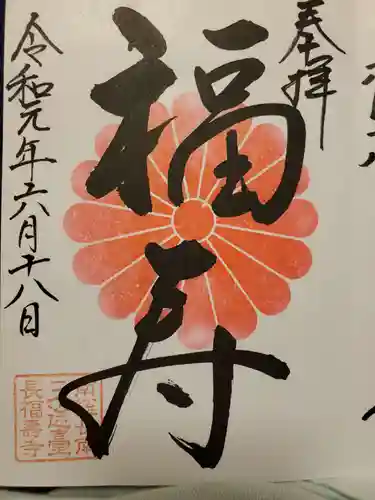 奉拝
福寿
令和元年六月十八日
長福壽寺